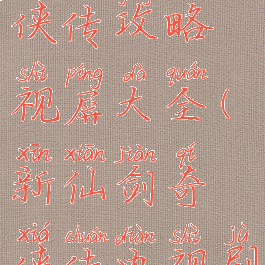 侠传攻略
shì píng dà quán
视屏大全（
xīn xiān jiàn qí
新仙剑奇
xiá chuán diàn shì jù
侠传电视剧